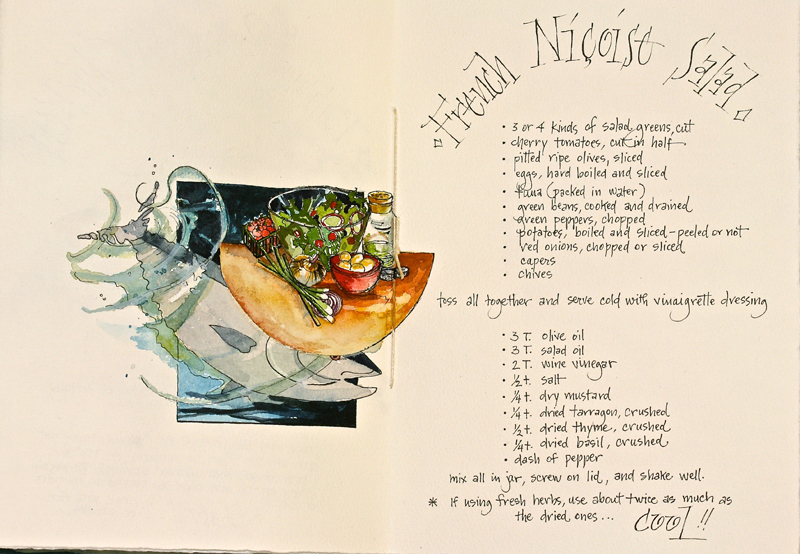 French Niçoise Salad
• 3 or 4 kinds of salad greens, cut
• cherry tomatoes, cut in half
• pitted ripe olives, sliced
• eggs, hard boiled and sliced
• tuna (packed in water)
• green beans, cooked and drained
• green peppers, chopped
• potatoes, boiled and sliced - peeled or not
• red onions, chopped or sliced
• capers
• chives
toss all together and serve cold with vinaigrette dressing
• 3 T. olive oil
• 3 T. salad oil
• 2 T. wine vinegar
• ½ t. salt
• ¼ t. dry mustard
• ¼ t. dried tarragon, crushed
• ½ t. dried thyme, crushed
• ¼ t. dried basil, crushed
• dash of pepper
mix all in jar, screw on lid, and shake well.
* If using fresh herbs, use about twice as much as
the dried ones... cool!!